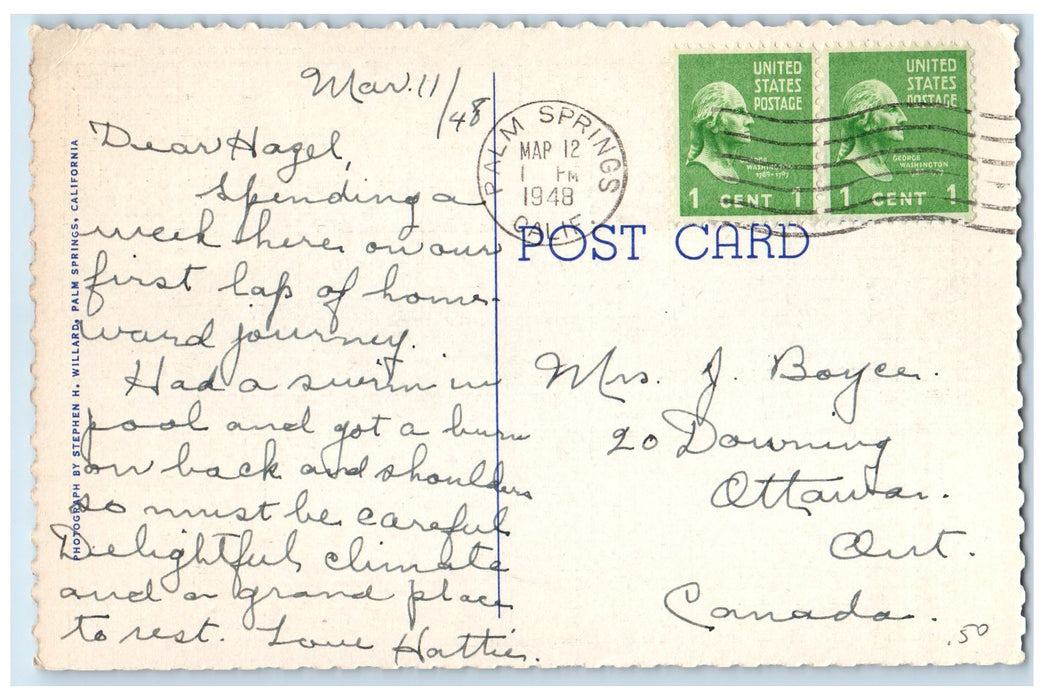 Mar. 11/48
Dear Hazel,
Spending a
week here on our
first lap of home-
ward journey.
Had a swim in
pool and got a burn
on back and shoulders
so must be careful
Delightful climate
and a grand place
to rest. Love Hattie.
PHOTOGRAPH BY STEPHEN H. WILLARD, PALM SPRINGS, CALIFORNIA
PALM SPRINGS
MAR 12
1 PM
1948
CALIF.
UNITED
STATES
POSTAGE
GEORGE
WASHINGTON
1789-1797
1 CENT 1
UNITED
STATES
POSTAGE
GEORGE
WASHINGTON
1 CENT 1
POST CARD
Mrs. J. Boyce.
20 Downing
Ottawa.
Ont.
Canada.
.50